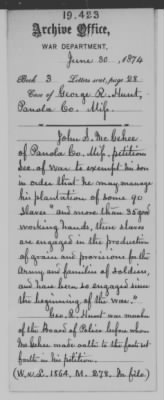 19.423
Archive Office,
WAR DEPARTMENT,
June 30, 1874
Book 3 Letters sent, page 28
Case of George R. Hunt,
Panola Co. Miss.
John S. McGehee
of Panola Co. Miss, petition
Sec of War to exempt his son
in order that he may manage
his plantation of some 90
slaves "and more than 35 good
working hands, these slaves
are engaged in the production
of grain and provisions for the
Army and families of soldiers,
and have been so engaged since
the beginning of the war."
Geo. R. Hunt was member
of the Board of Police before whom
McGehee made oath to the facts set
forth in his petition.
(W. 1864, M. 278. In file.)